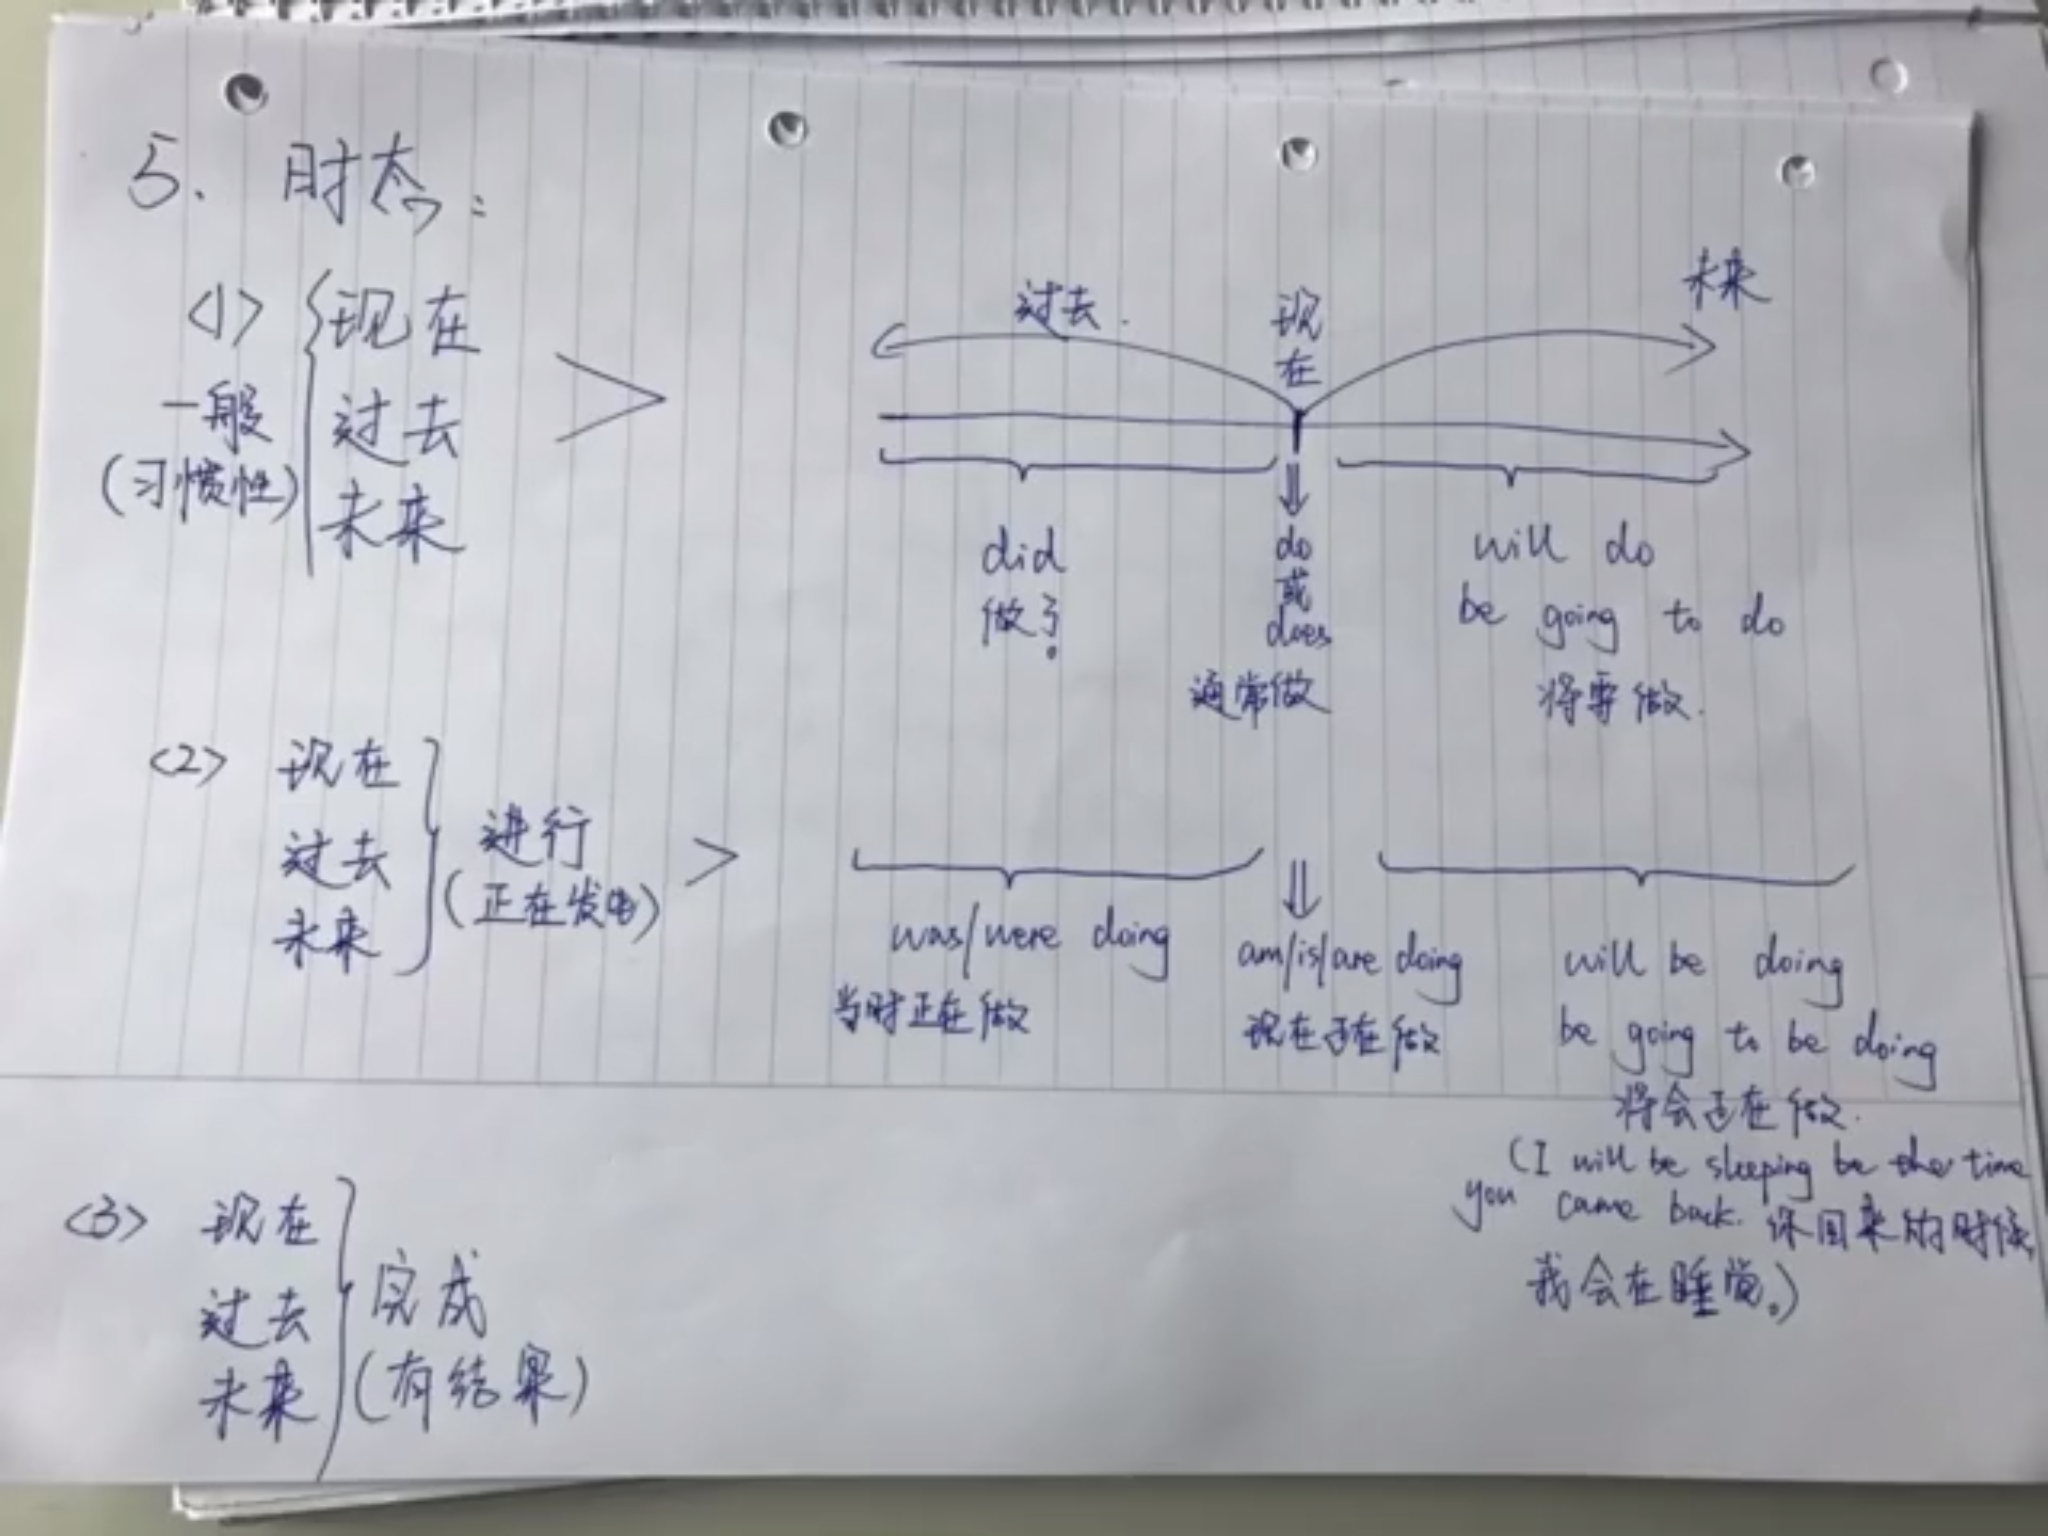 5. 时态:
<1>
一般
(习惯性)
现在
过去
未来
过去.
现
在
未来
did
做了。
do
或
does
通常做
will do
be going to do
将要做.
<2>
现在
过去
未来
进行
(正在发生)
was/were doing
当时正在做
am/is/are doing
现在正在做
will be doing
be going to be doing
将会正在做.
(I will be sleeping be the time
you came back. 你回来的时候,
我会在睡觉。)
<3>
现在
过去
未来
完成
(有结果)